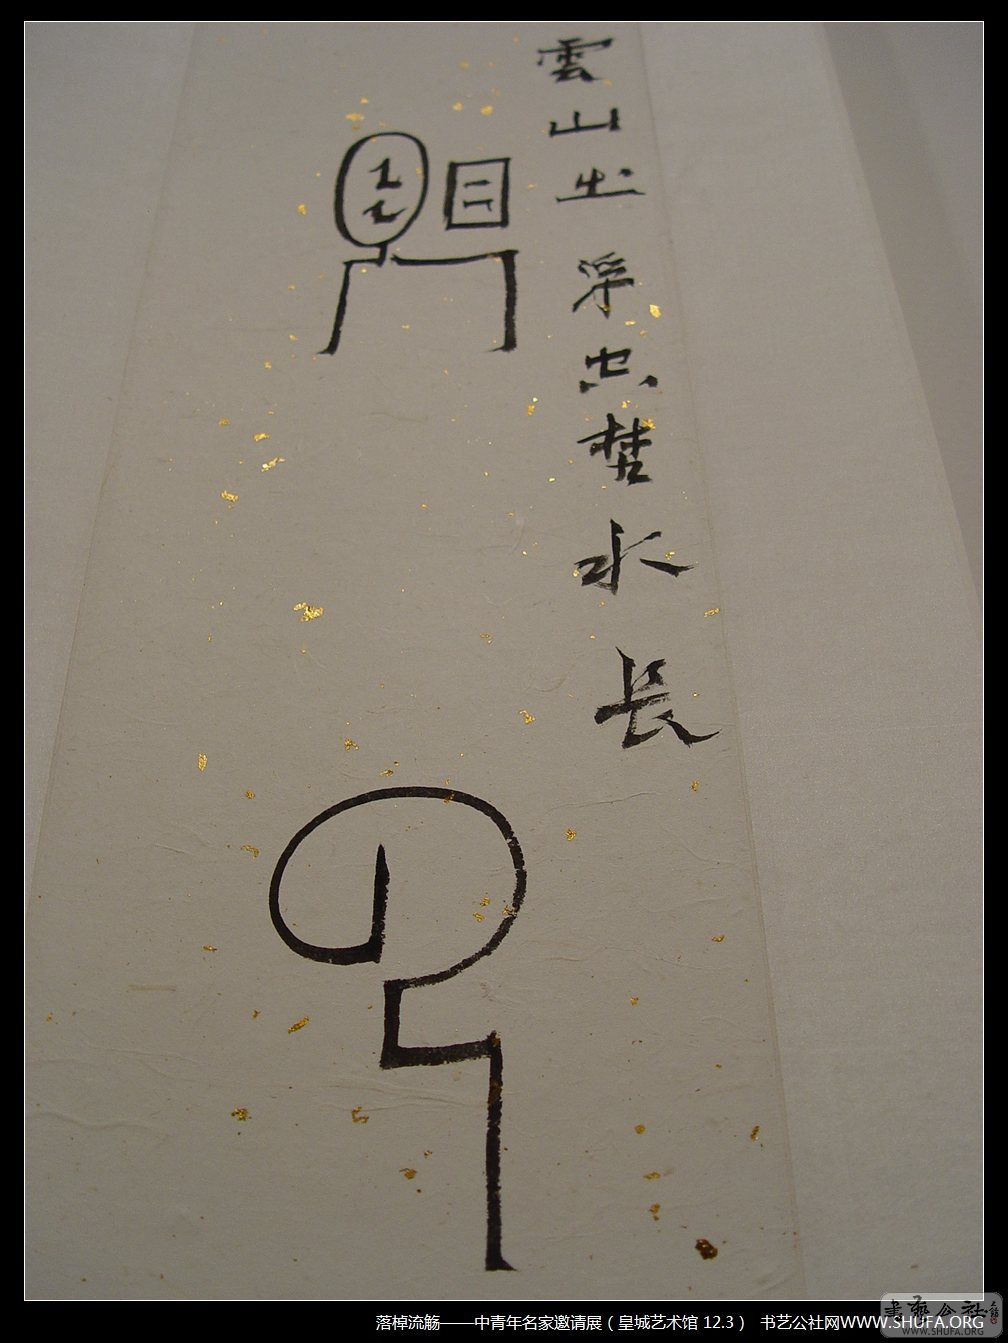 雲山浮空楚水長
落棹流觞——中青年名家邀请展（皇城艺术馆 12.3） 书艺公社网WWW.SHUFA.ORG
書藝公社
WWW.SHUFA.ORG